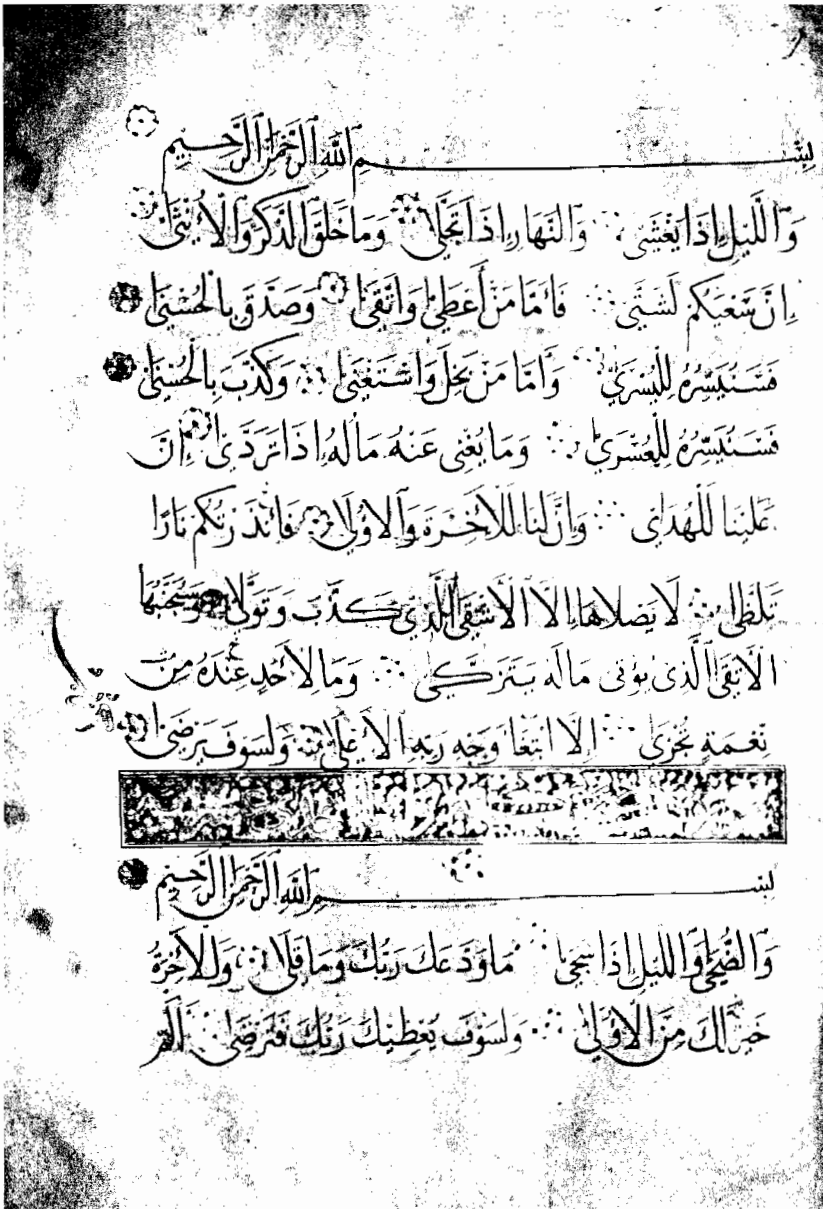 بِسْمِ ٱللَّهِ ٱلرَّحْمَٰنِ ٱلرَّحِيمِ
وَٱللَّيْلِ إِذَا يَغْشَى وَٱلنَّهَارِ إِذَا تَجَلَّى وَمَا خَلَقَ ٱلذَّكَرَ وَٱلْأُنْثَى
إِنَّ سَعْيَكُمْ لَشَتَّى فَأَمَّا مَنْ أَعْطَى وَاتَّقَى وَصَدَّقَ بِالْحُسْنَى
فَسَنُيَسِّرُهُ لِلْيُسْرَى وَأَمَّا مَنْ بَخِلَ وَاسْتَغْنَى وَكَذَّبَ بِالْحُسْنَى
فَسَنُيَسِّرُهُ لِلْعُسْرَى وَمَا يُغْنِى عَنْهُ مَالُهُ إِذَا تَرَدَّى إِنَّ
عَلَيْنَا لَلْهُدَى وَإِنَّ لَنَا لَلْآخِرَةَ وَٱلْأُولَى فَأَنْذَرْتُكُمْ نَارًا
تَلَظَّى لَا يَصْلَاهَا إِلَّا ٱلْأَشْقَى ٱلَّذِى كَذَّبَ وَتَوَلَّى وَسَيُجَنَّبُهَا
ٱلْأَتْقَى ٱلَّذِى يُؤْتِى مَالَهُ يَتَزَكَّى وَمَا لِأَحَدٍ عِنْدَهُ مِنْ
نِعْمَةٍ تُجْزَى إِلَّا ابْتِغَا وَجْهِ رَبِّهِ ٱلْأَعْلَى وَلَسَوْفَ يَرْضَى
بِسْمِ ٱللَّهِ ٱلرَّحْمَٰنِ ٱلرَّحِيمِ
وَٱلضُّحَى وَٱللَّيْلِ إِذَا سَجَى مَا وَدَّعَكَ رَبُّكَ وَمَا قَلَى وَلَلْآخِرَةُ
خَيْرٌ لَكَ مِنَ ٱلْأُولَى وَلَسَوْفَ يُعْطِيكَ رَبُّكَ فَتَرْضَى أَلَمْ